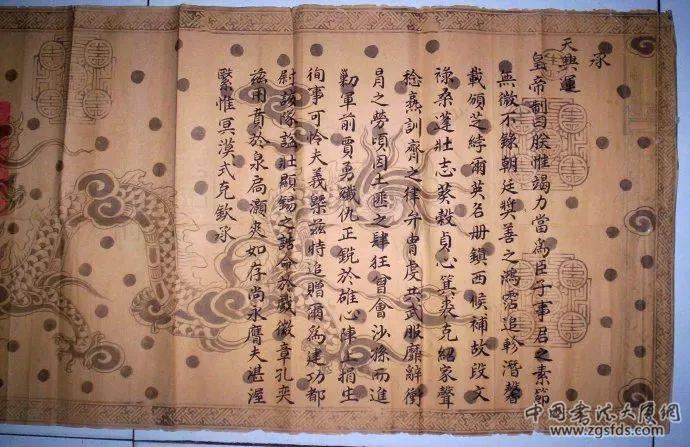 承
天興運
皇帝制曰朕惟竭力當為臣子事君之素節
無微不錄朝廷奬善之鴻霑追軫潛馨
載頒芝綍爾英名册鎮西候補故段文
祿桑蓬壯志葵榖貞心箕裘克紹家聲
稔燕訓齊之律弁胄虔共武服靡辭衝
冒之勞頃因土匪之肆狂曾會沙孫而進
勦軍前賈勇殲仇正銳於雄心陣上捐生
徇事可怜夫義槩茲特追贈爾為建功都
尉該隊謚壯顯錫之誥命於戲徽章孔奕
茲用賁於泉扃灝爽如存尚永膺夫湛渥
繄惟冥漠式克欽承
中國書法大展網
www.zgsfds.com